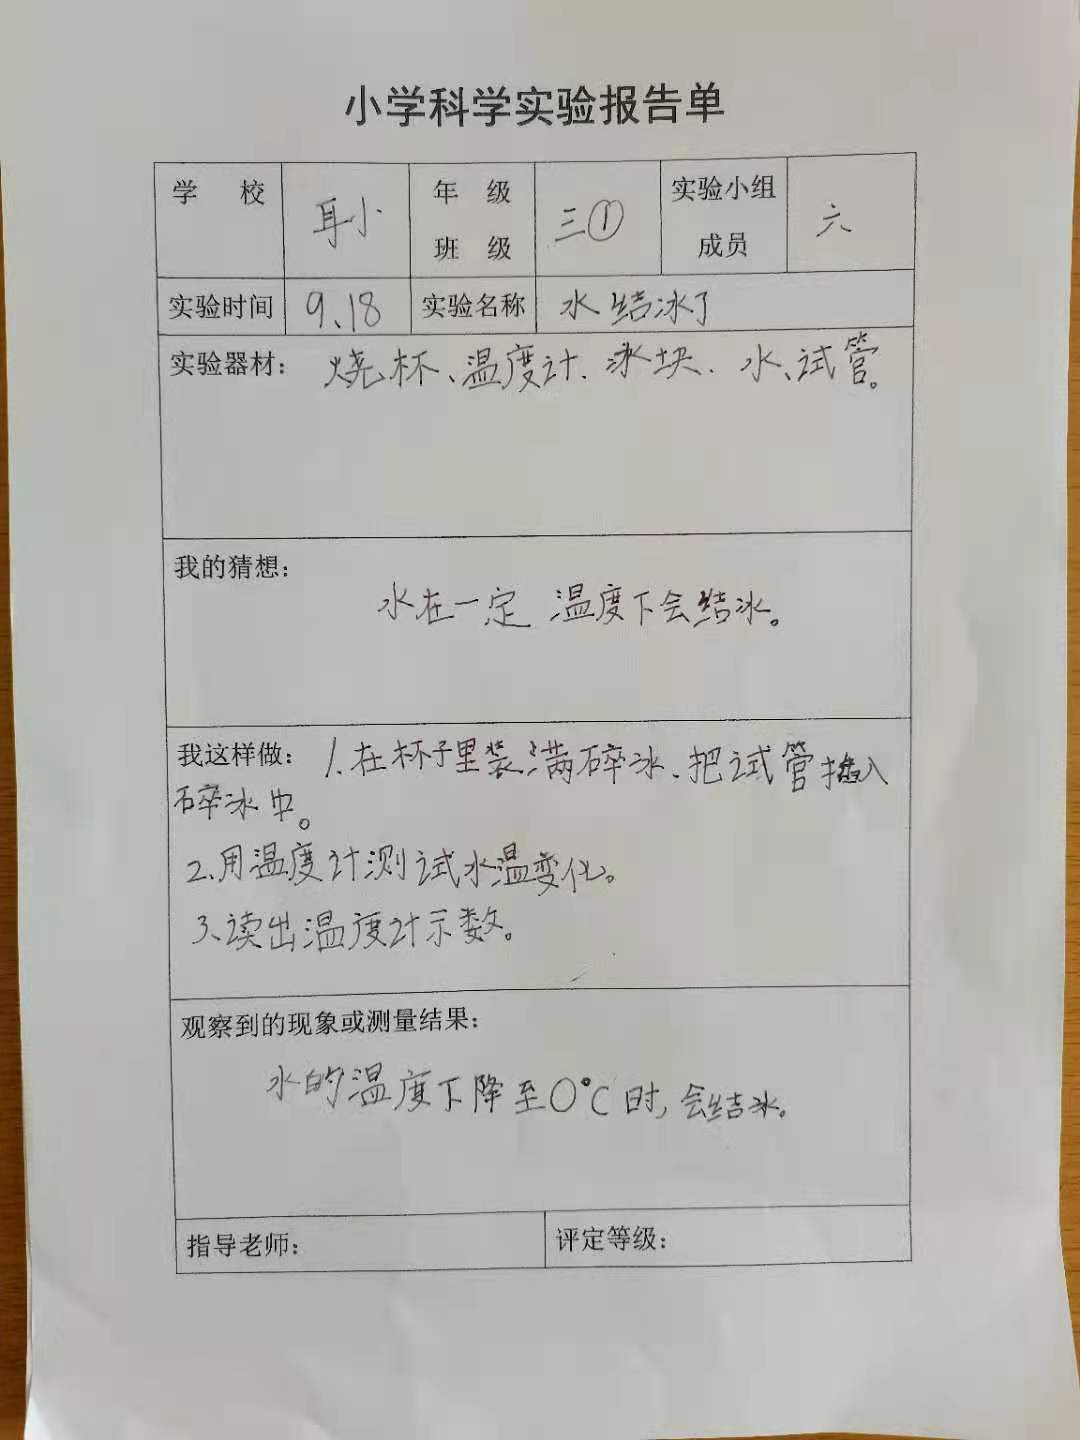 小学科学实验报告单
学 校 耳小 年 级 班 级 三① 实验小组 成员 六
实验时间 9、18 实验名称 水结冰了
实验器材: 烧杯、温度计、冰块、水、试管。
我的猜想:
水在一定温度下会结冰。
我这样做: 1、在杯子里装满碎冰、把试管插入
碎冰中。
2、用温度计测试水温变化。
3、读出温度计示数。
观察到的现象或测量结果:
水的温度下降至0°C时,会结冰。
指导老师: 评定等级: